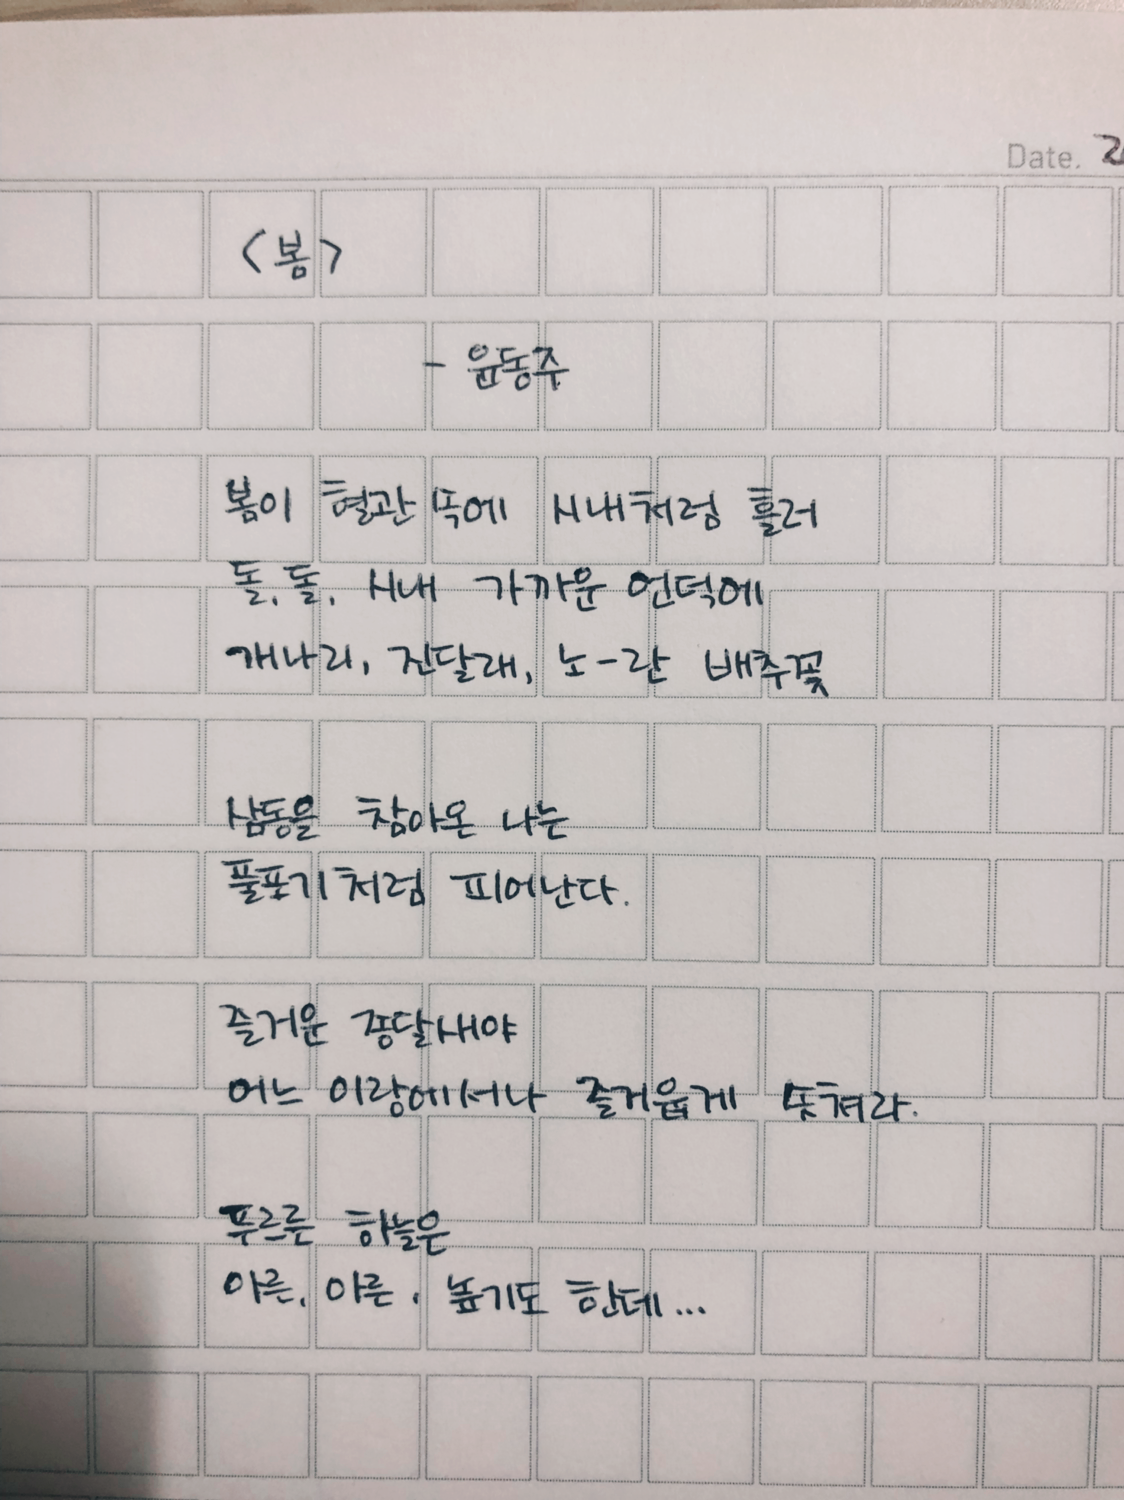 Date. 2
<봄>
- 윤동주
봄이 혈관 속에 시내처럼 흘러
돌, 돌, 시내 가까운 언덕에
개나리, 진달래, 노-란 배추꽃
삼동을 참아온 나는
풀포기처럼 피어난다.
즐거운 종달새야
어느 이랑에서나 즐거웁게 솟쳐라.
푸르른 하늘은
아른, 아른, 높기도 한데...